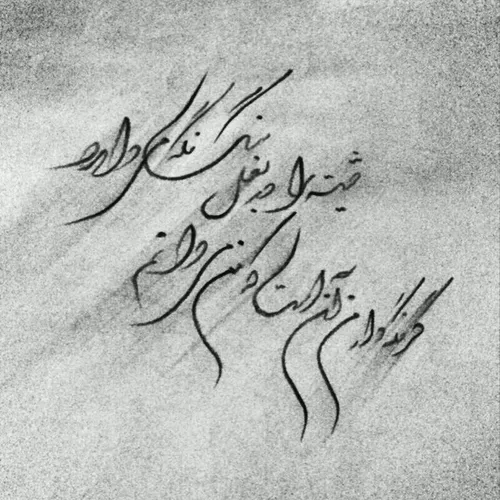 گر نگهدار من آن است که من می دانم
شیشه را در بغل سنگ نگه می دارد